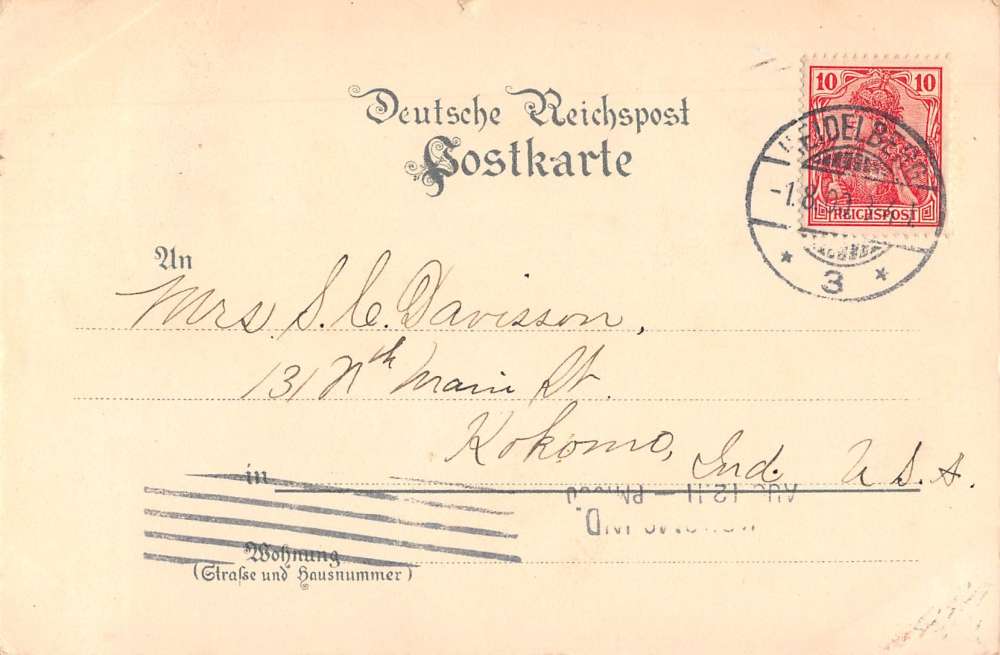 Deutsche Reichspost
Postkarte
10 10
REICHSPOST
HEIDELBERG
-1.8.
* 3 *
An
Mrs S. C. Davisson,
131 Nth Main St.
Kokomo, Ind. U.S.A.
in
AUG 12 11 — PM
KOKOMO IND.
Wohnung
(Straſse und Hausnummer)